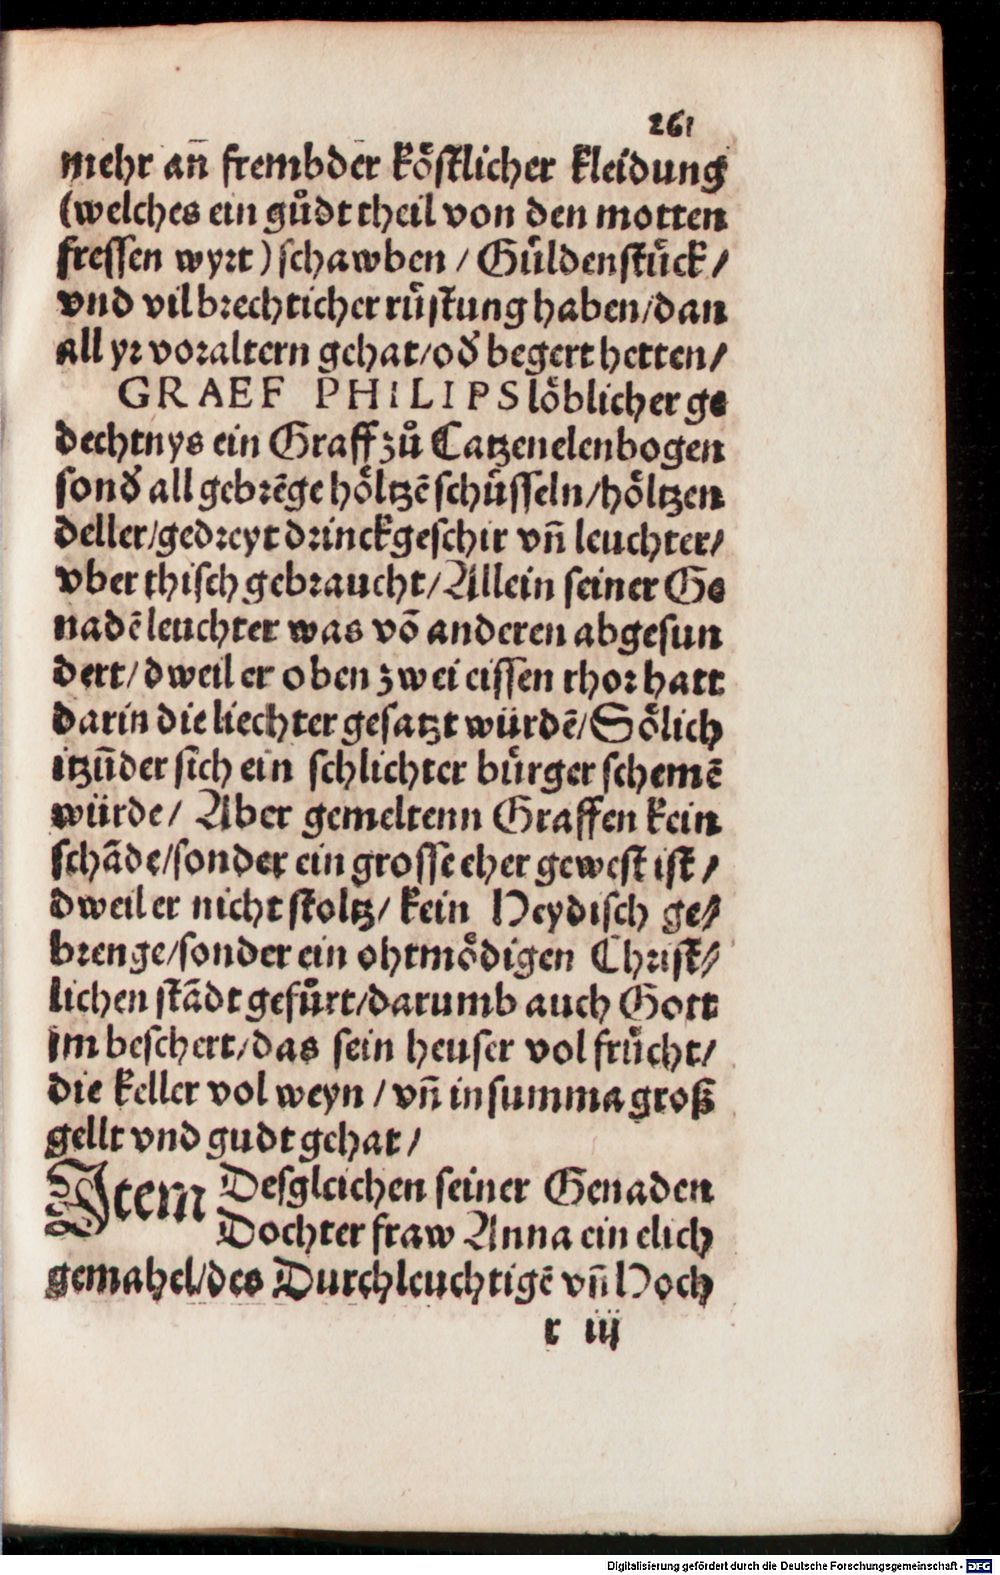 261
mehr añ frembder kôstlicher kleidung
(welches ein gůdt theil von den motten
fressen wyrt) schawben / Gůldenstůck /
vnd vil brechticher růstung haben / dan
all yr voraltern gehat / oď begert hetten /
GRAEF PHILIPS lôblicher ge
dechtnys ein Graff zů Catzenelenbogen
sonď all gebrẽge hôltzẽ schůsseln / hôltzen
deller / gedreyt drinckgeschir vñ leuchter /
vber thisch gebraucht / Allein seiner Ge
nadẽ leuchter was võ anderen abgesun
dert / dweil er oben zwei eissen rhor hatt
darin die liechter gesatzt würdẽ / Sôlich
itzũder sich ein schlichter bůrger schemẽ
würde / Aber gemeltenn Graffen kein
schãde / sonder ein grosse eher gewest ist /
dweil er nicht stoltz / kein Heydisch ge/
brenge / sonder ein ohtmôdigen Christ/
lichen stãdt gefůrt / darumb auch Gott
im beschert / das sein heuser vol frůcht /
die keller vol weyn / vñ in summa groß
gellt vnd gudt gehat /
Item Desgleichen seiner Genaden
Dochter fraw Anna ein elich
gemahel / des Durchleuchtigẽ vñ Hoch
r iij
Digitalisierung gefördert durch die Deutsche Forschungsgemeinschaft - DFG